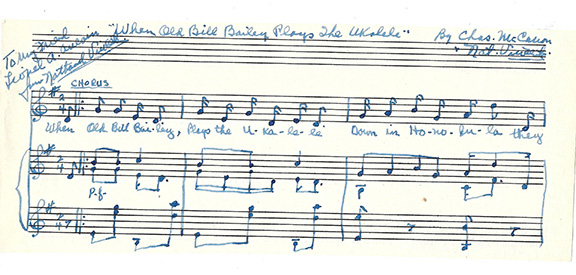 "When Old Bill Bailey Plays The Ukalele"
By Chas. McCarron
& Nat. Vincent
To my friend
from Nathaniel Vincent
CHORUS
When Old Bill Bai-ley, Plays the U-ka-le-le Down in Ho-no-lu-la they
P-f-